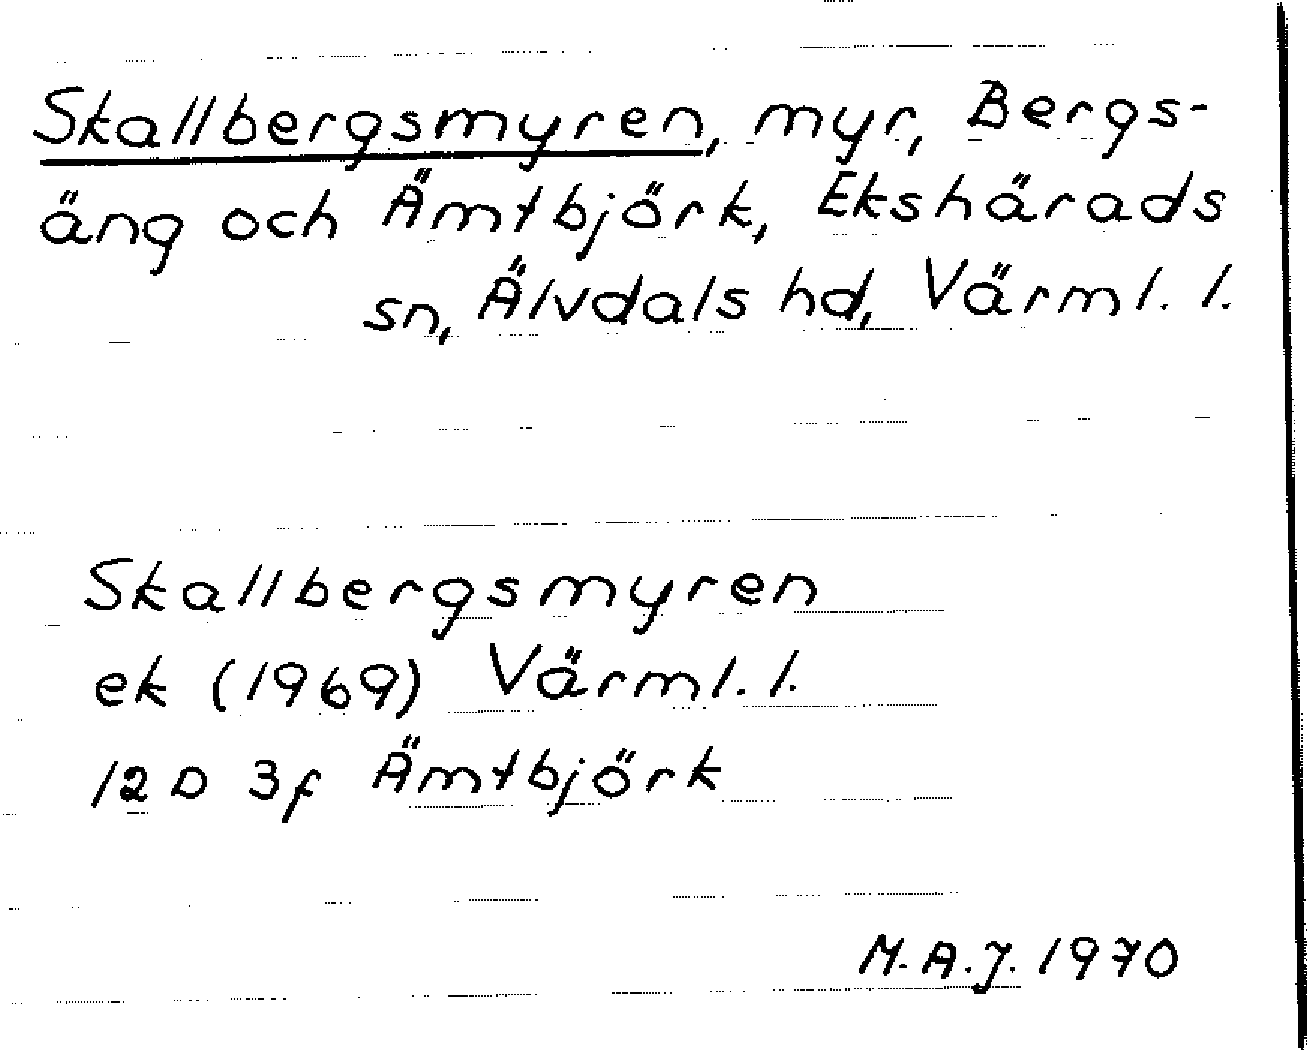 Skallbergsmyren, myr, Bergs-
äng och Ämtbjörk, Ekshärads
sn, Älvdals hd, Värml. l.
Skallbergsmyren
ek (1969) Värml. l.
12 D 3f Ämtbjörk
M.A.J. 1970